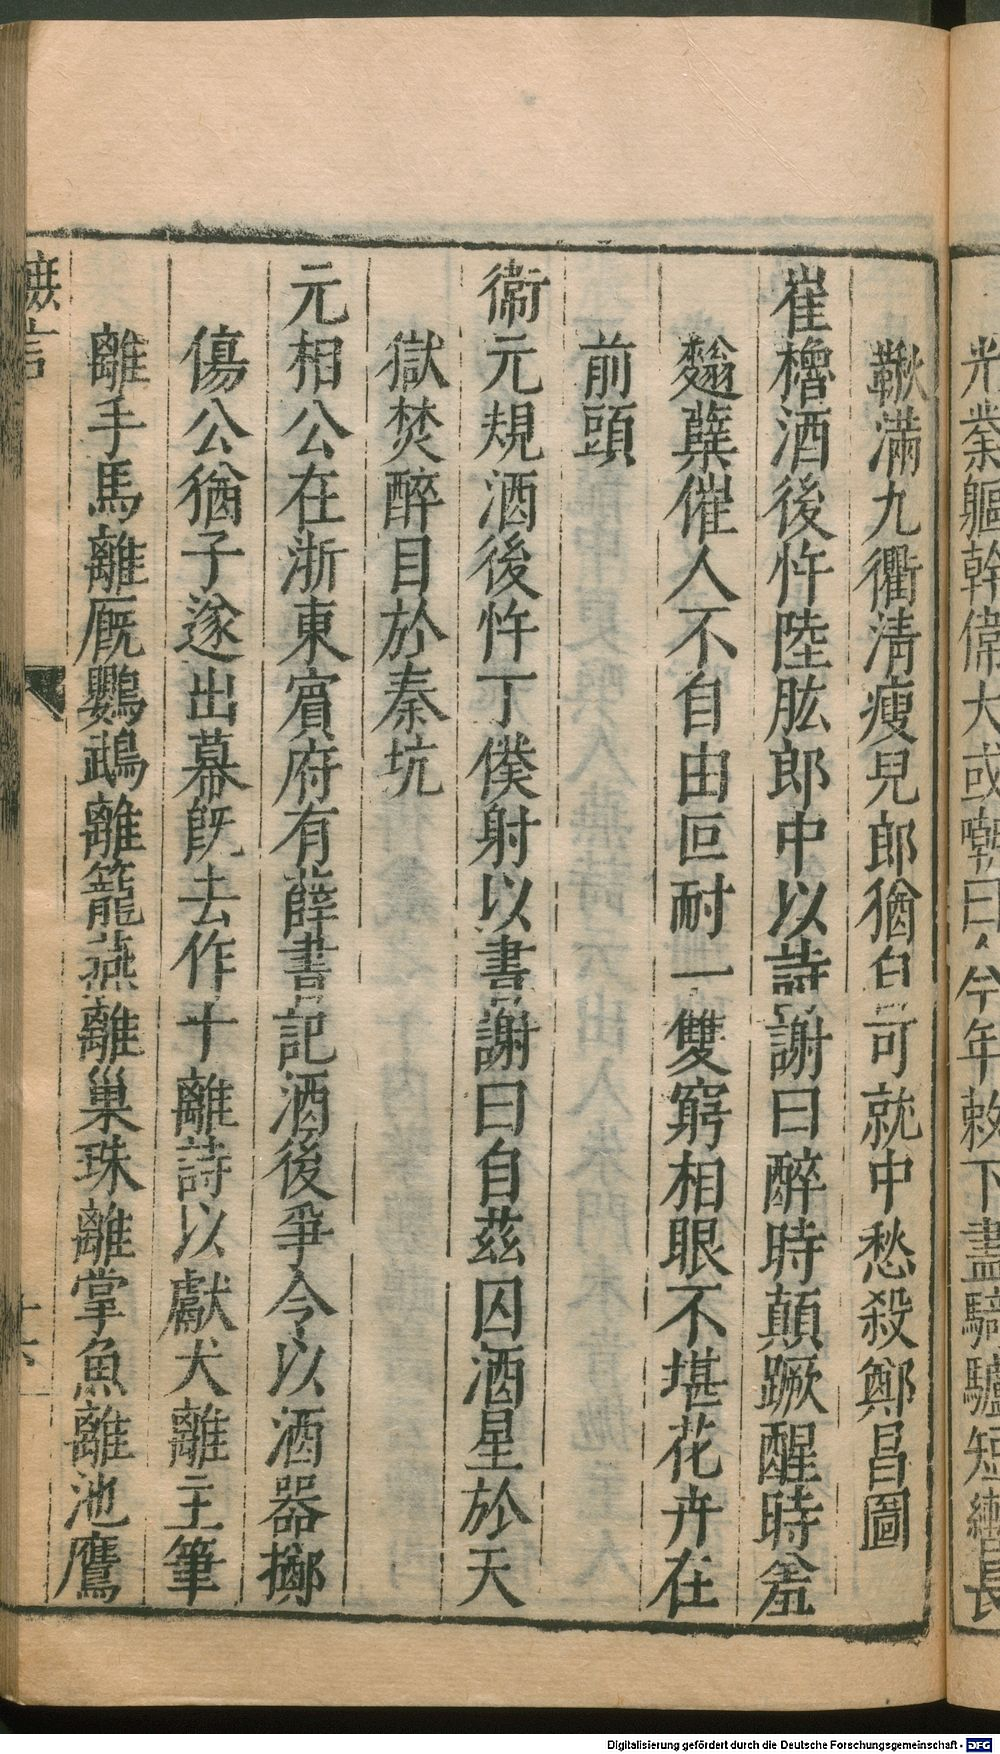 光業軀幹偉大或嘲曰今年敕下盡騎驢短轡長
鞦滿九衢清瘦兒郎猶自可就中愁殺鄭昌圖
崔櫓酒後忤陸肱郎中以詩謝曰醉時顛蹶醒時羞
麴糵催人不自由叵耐一雙窮相眼不堪花卉在
前頭
衞元規酒後忤丁僕射以書謝曰自茲囚酒星於天
獄焚醉目於秦坑
元相公在浙東賓府有薛書記酒後爭令以酒器擲
傷公猶子遂出幕旣去作十離詩以獻犬離主筆
離手馬離厩鸚鵡離籠燕離巢珠離掌魚離池鷹
摭言
十六
Digitalisierung gefördert durch die Deutsche Forschungsgemeinschaft - DFG